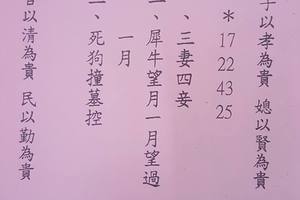 子以孝為貴 媳以賢為貴
＊
17
22
43
25
、三妻四妾
、犀牛望月一月望過
一月
、死狗撞墓控
以清為貴 民以勤為貴